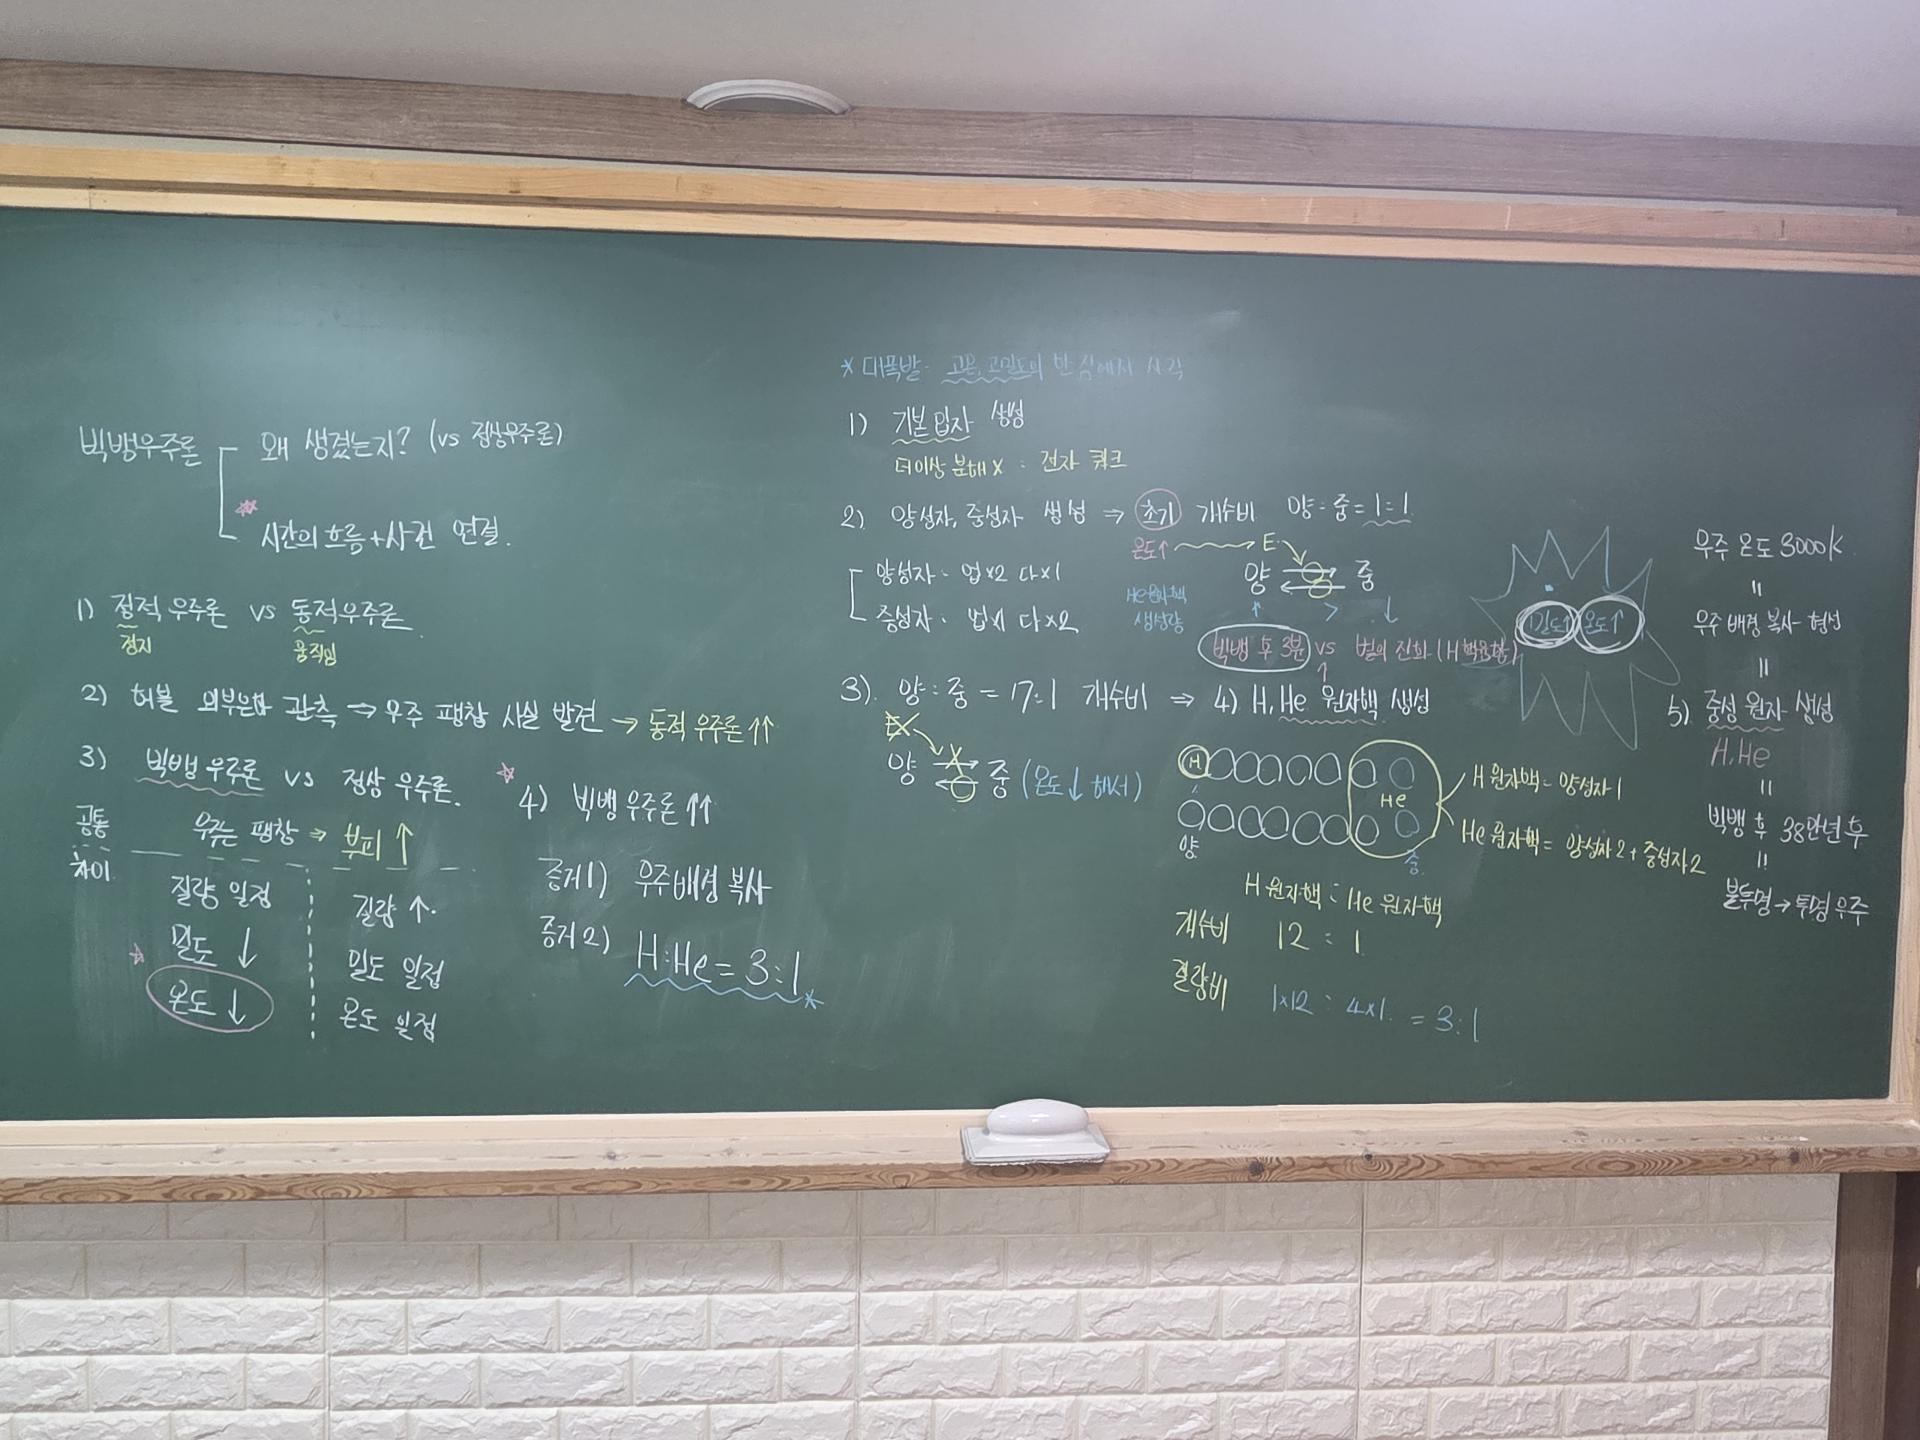 빅뱅우주론
왜 생겼는지? (vs 정상우주론)
시간의 흐름+사건 연결.
1) 정적 우주론 vs 동적우주론.
정지 움직임
2) 허블 외부은하 관측 → 우주 팽창 사실 발견 → 동적 우주론 ↑↑
3) 빅뱅 우주론 vs 정상 우주론.
공통 우주는 팽창 ⇒ 부피 ↑
차이
질량 일정 질량 ↑.
밀도 ↓ 밀도 일정
온도 ↓ 온도 일정
4) 빅뱅 우주론 ↑↑
증거1) 우주배경 복사
증거2) H:He = 3:1
* 대폭발: 고온, 고밀도의 한 점에서 시작
1) 기본 입자 생성
더이상 분해 X : 전자 쿼크
2) 양성자, 중성자 생성 ⇒ 초기 개수비 양:중=1:1
온도↑ → E
양성자: 업×2 다×1
중성자: 업×1 다×2
양 ⇄ 중
He 원자핵
생성량
빅뱅 후 3분 vs 별의 진화 (H 핵융합)
밀도↑ 온도↑
3). 양:중 = 17:1 개수비 ⇒ 4) H, He 원자핵 생성
E
양 ⇄ 중 (온도↓ 해서)
H
He
양 중
H 원자핵 = 양성자 1
He 원자핵 = 양성자 2 + 중성자 2
H 원자핵 : He 원자핵
개수비 12 : 1
질량비 1×12 : 4×1. = 3:1
우주 온도 3000K
=
우주 배경 복사 형성
=
5) 중성 원자 생성
H, He
=
빅뱅 후 38만년 후
=
불투명 → 투명 우주